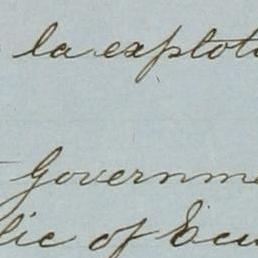 la explot
Governme
lic of Ecu